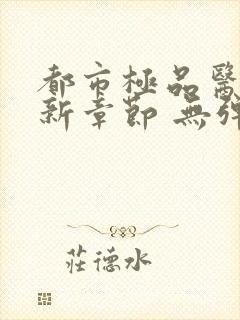 都市極品醫
新章節 無彈
莊德水